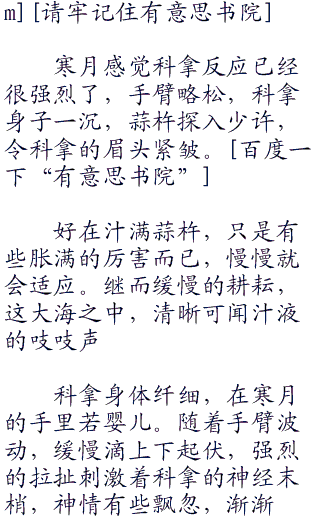 m][请牢记住有意思书院]
寒月感觉科拿反应已经
很强烈了，手臂略松，科拿
身子一沉，蒜杵探入少许，
令科拿的眉头紧皱。[百度一
下“有意思书院”]
好在汁满蒜杵，只是有
些胀满的厉害而已，慢慢就
会适应。继而缓慢的耕耘，
这大海之中，清晰可闻汁液
的吱吱声
科拿身体纤细，在寒月
的手里若婴儿。随着手臂波
动，缓慢滴上下起伏，强烈
的拉扯刺激着科拿的神经末
梢，神情有些飘忽，渐渐